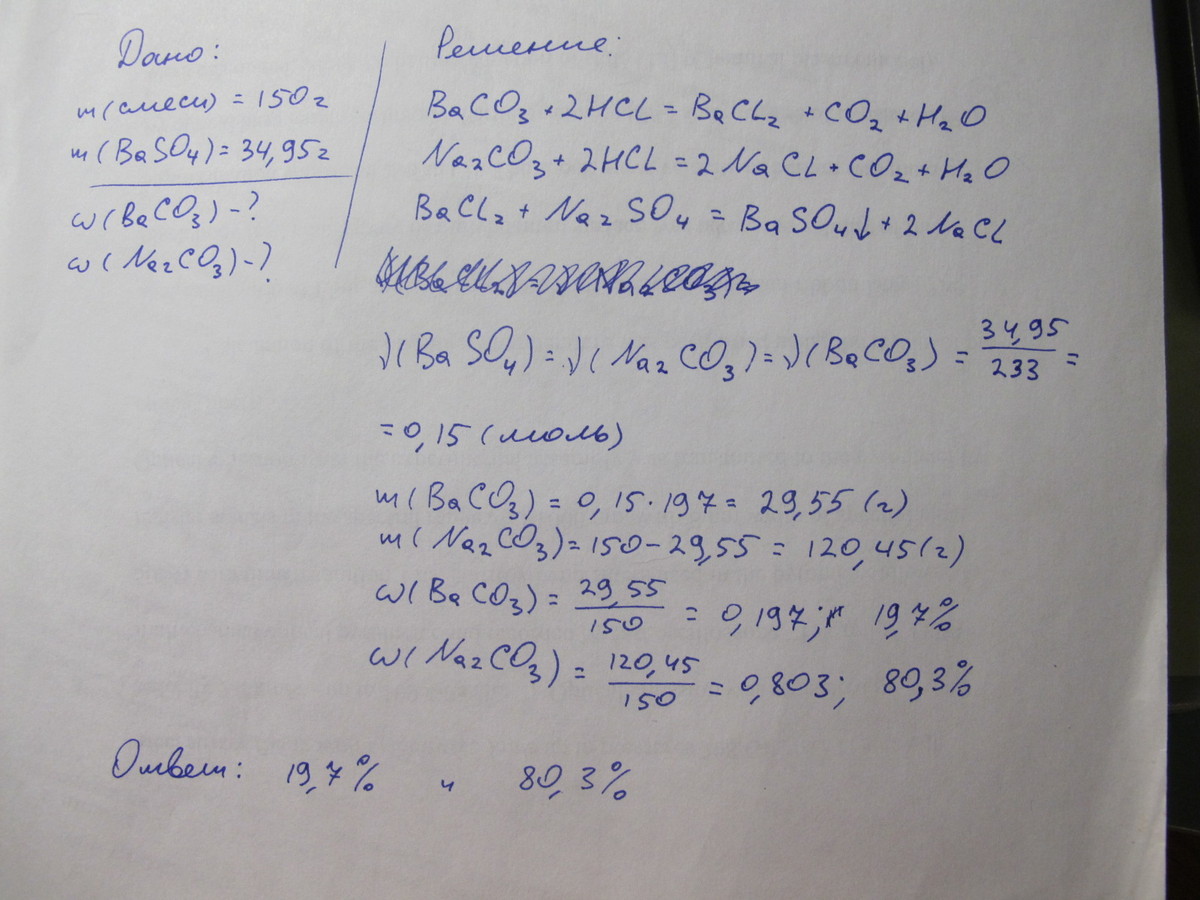 Дано:
m(смеси) = 150г
m(BaSO4) = 34,95г
ω(BaCO3) - ?
ω(Na2CO3) - ?
Решение:
BaCO3 + 2HCL = BaCL2 + CO2 + H2O
Na2CO3 + 2HCL = 2NaCL + CO2 + H2O
BaCL2 + Na2SO4 = BaSO4↓ + 2NaCL
ν(BaSO4) = ν(Na2CO3) = ν(BaCO3) = 34,95/233 =
= 0,15 (моль)
m(BaCO3) = 0,15 · 197 = 29,55 (г)
m(Na2CO3) = 150 - 29,55 = 120,45 (г)
ω(BaCO3) = 29,55/150 = 0,197; 19,7%
ω(Na2CO3) = 120,45/150 = 0,803; 80,3%
Ответ: 19,7% и 80,3%